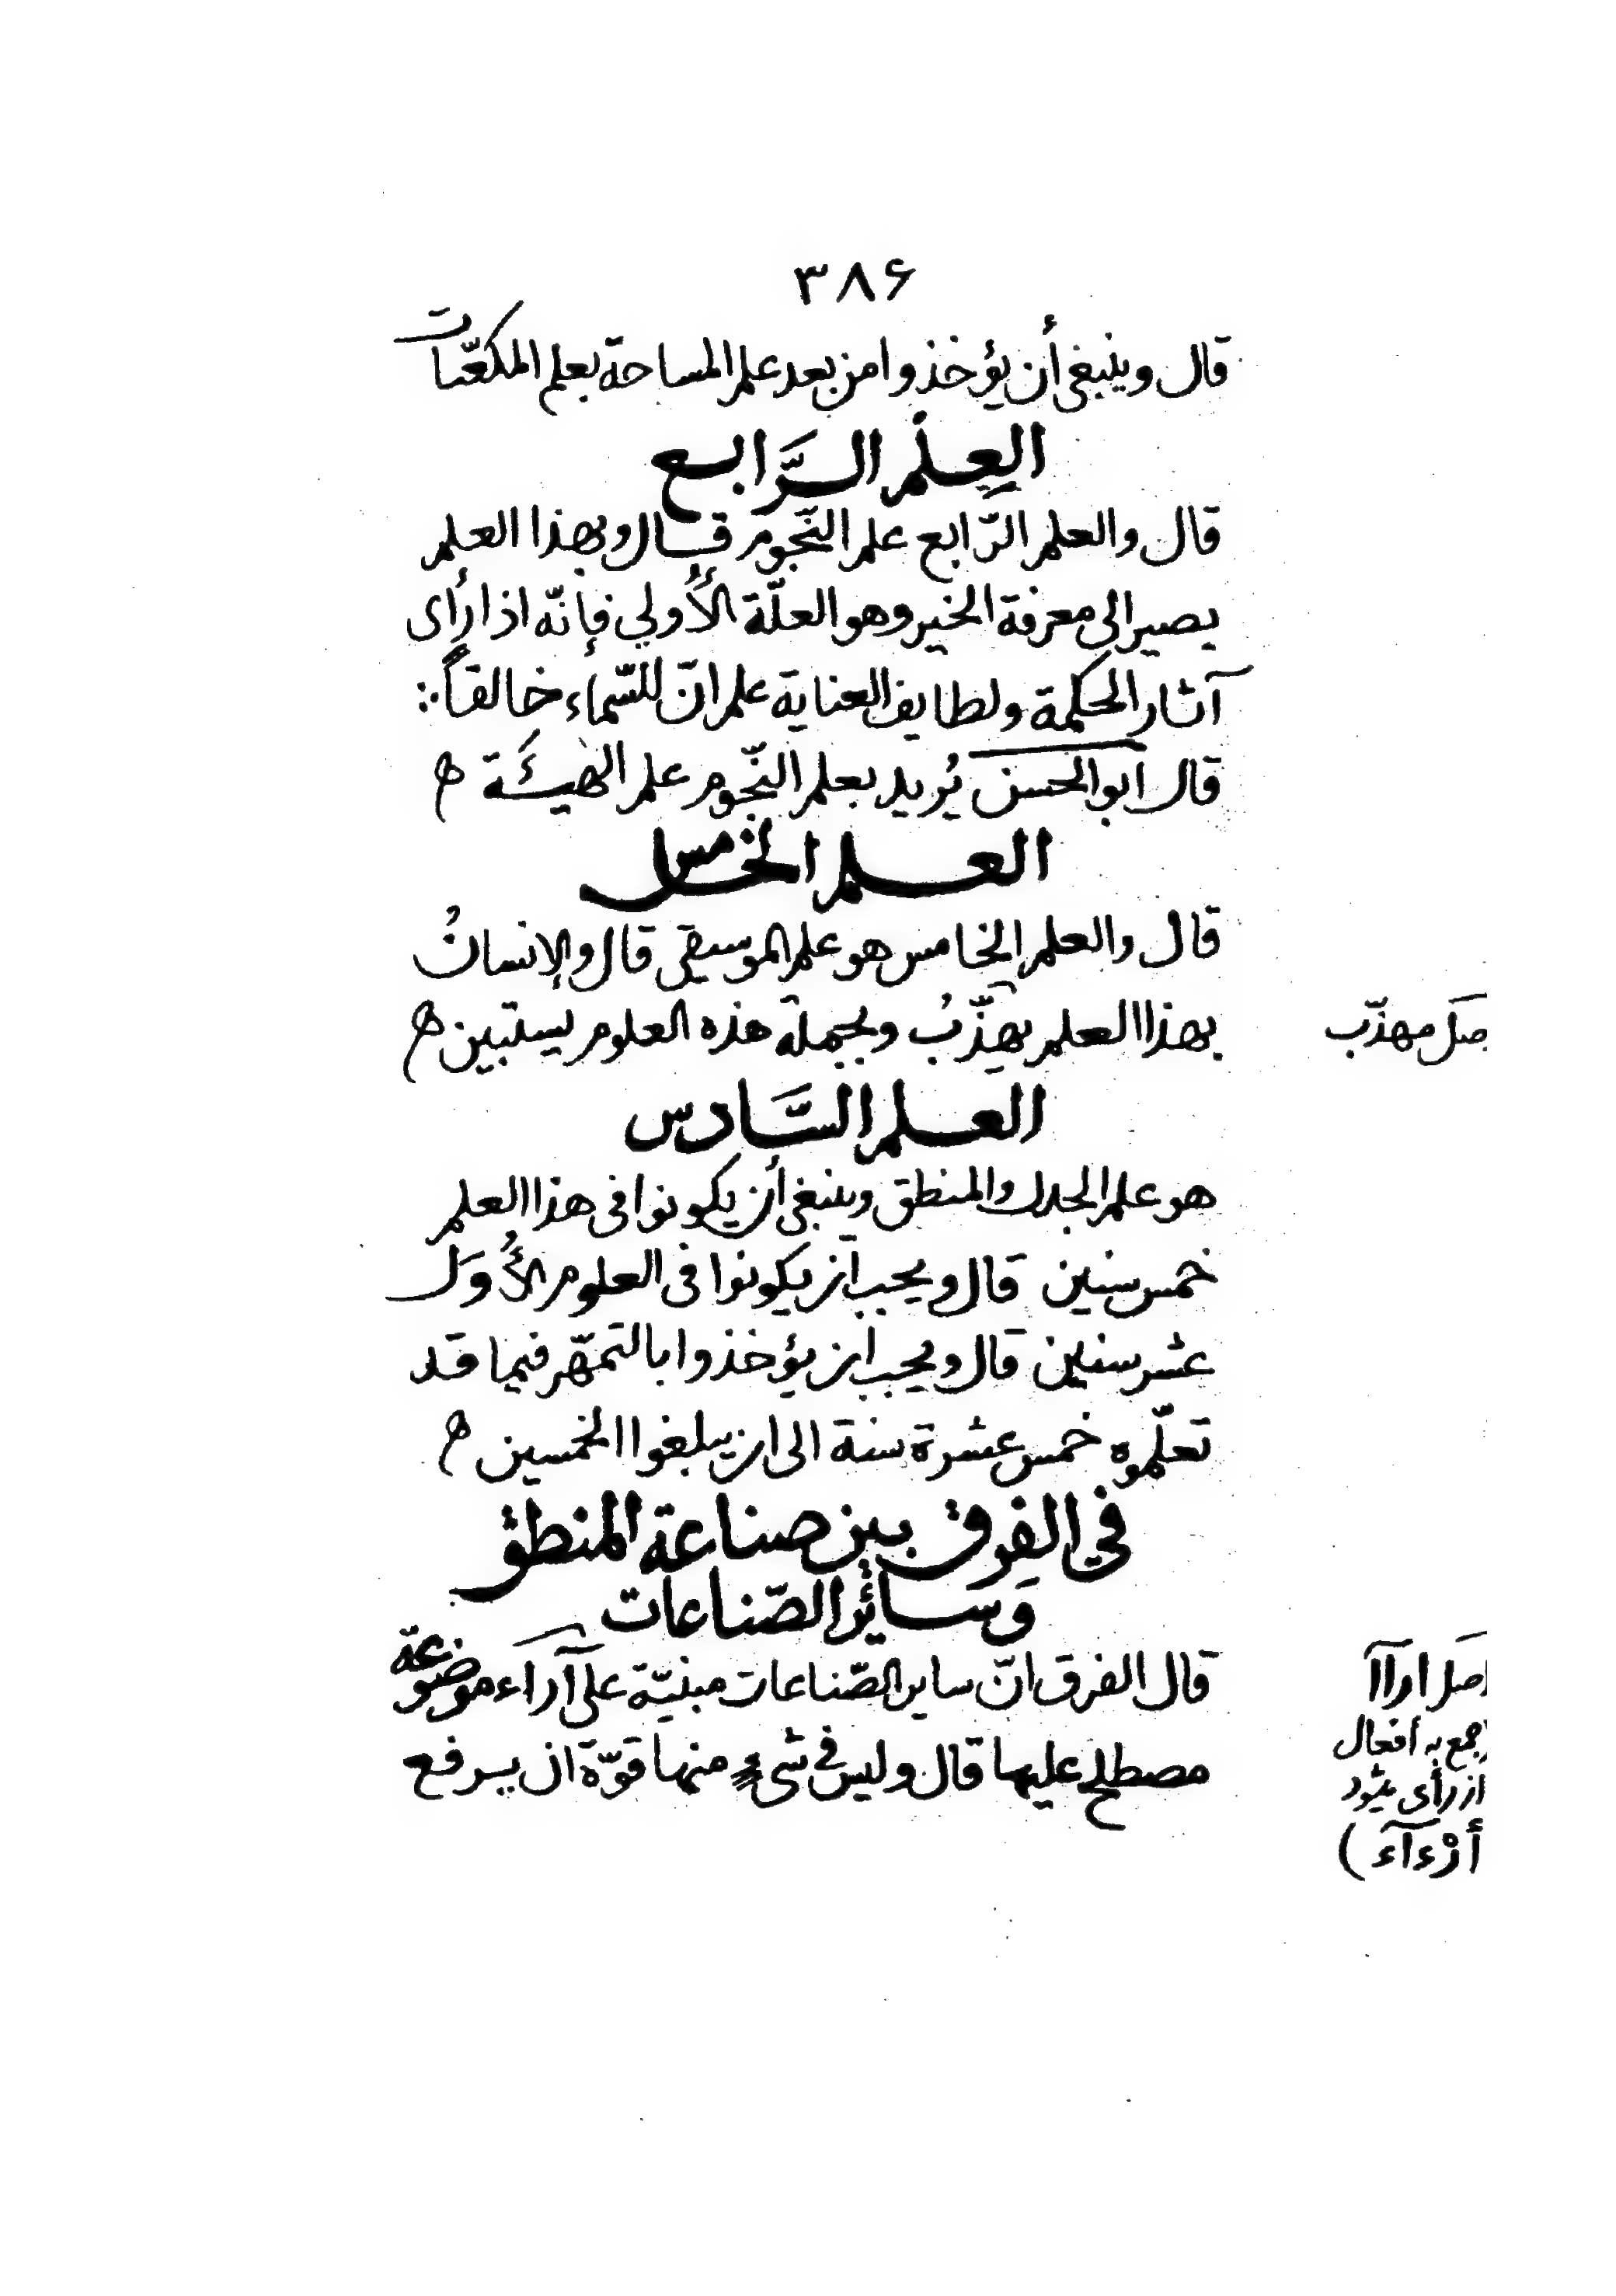 ۳۸۶
قال وينبغى أن يؤخذوا من بعد علم المساحة بعلم المكعّبات
العِلْم الرَّابع
قال والعلم الرّابع علم النّجوم قال وبهذا العلم
يصير الى معرفة الخير وهو العلّة الأُولي فإنّه اذا رأى
آثار الحكمة ولطايف العناية علم انّ للسّماء خالقاً ∴
قال ابوالحسن يُريد بعلم النّجوم علم الهيئَة ۿ
العلم الخامس
قال والعلم الخامس هو علم الموسيقى قال والإنسانُ
بهذا العلم يهذّبُ وبجملة هذه العلوم يستبين ۿ
صل مهذّب
العلم السَّادس
هو علم الجدل والمنطق وينبغى أن يكونوا فى هذا العلم
خمس سنين قال ويجب آن يكونوا فى العلوم الأُوَل
عشر سنين قال ويجب ان يؤخذوا بالتمهّر فيما قد
تعلّموه خمس عشرة سنة الى ان يبلغوا الخمسين ۿ
في الفرق بين صناعة المنطق
وَسائر الصّناعات
قال الفرق انّ ساير الصّناعات مبنيّة على آراء موضوعة
مصطلح عليها قال وليس فى شىءٍ منها قوّة ان يرفع
صل اراآ
جمع به افعال
از رأى بشود
أرْءَآء )